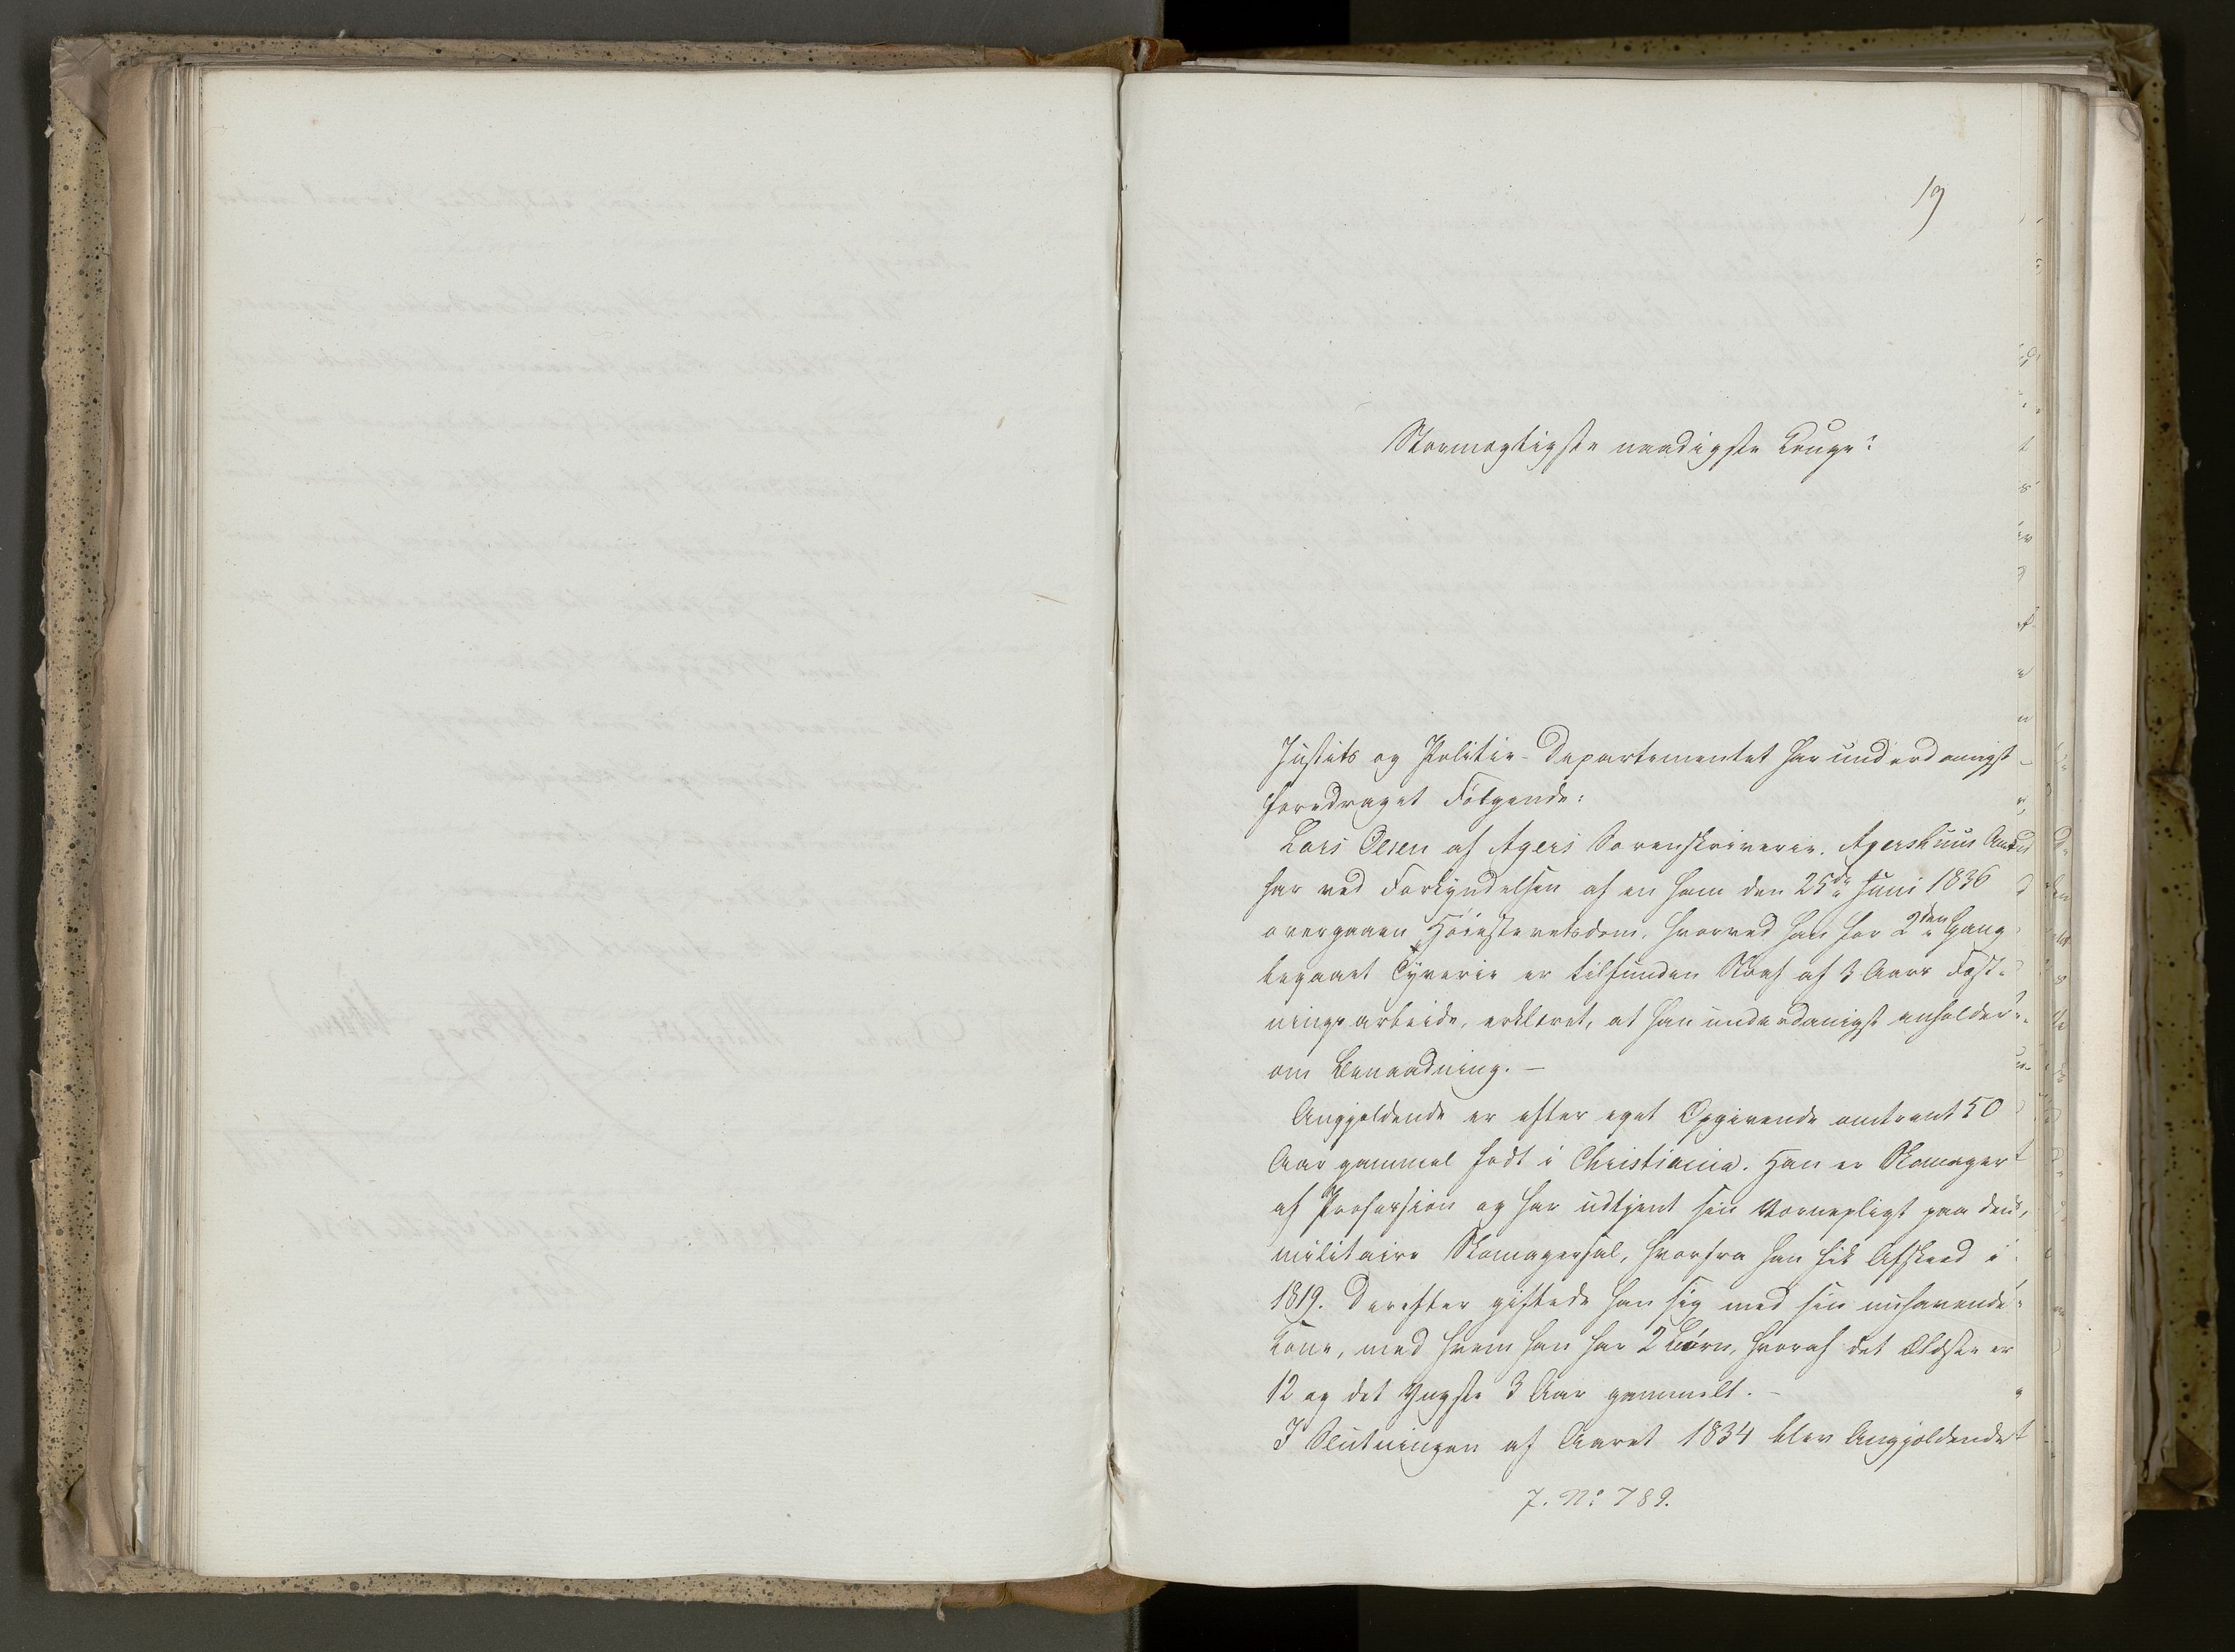 19
Stormægtigste naadigste Konge!
Justits og Politie-Departementet har underdanigst
foredraget Følgende:
Lars Olsen af Agers Sorenskriverie, Agershuus Amt
har ved Forkyndelsen af en ham den 25de Juni 1836
overgaaen Höiesteretsdom, hvorved han for 2den Gang
begaaet Tyverie er tilfunden Straf af 3 Aars Fæst-
ningsarbeide, erklæret, at han underdanigst anholder
om Benaadning. —
Angjeldende er efter eget Opgivende omtrent 50
Aar gammel født i Christiania. Han er Skomager
af Profession og har udtjent sin Vernepligt paa den
militaire Skomagersal, hvorfra han fik Afskeed i
1819. Derefter giftede han sig med sin nuhavende
Kone, med hvem han har 2 Børn, hvoraf det Ældste er
12 og det Yngste 3 Aar gammelt. —
I Slutningen af Aaret 1834 blev Angjeldende
J. No 789.